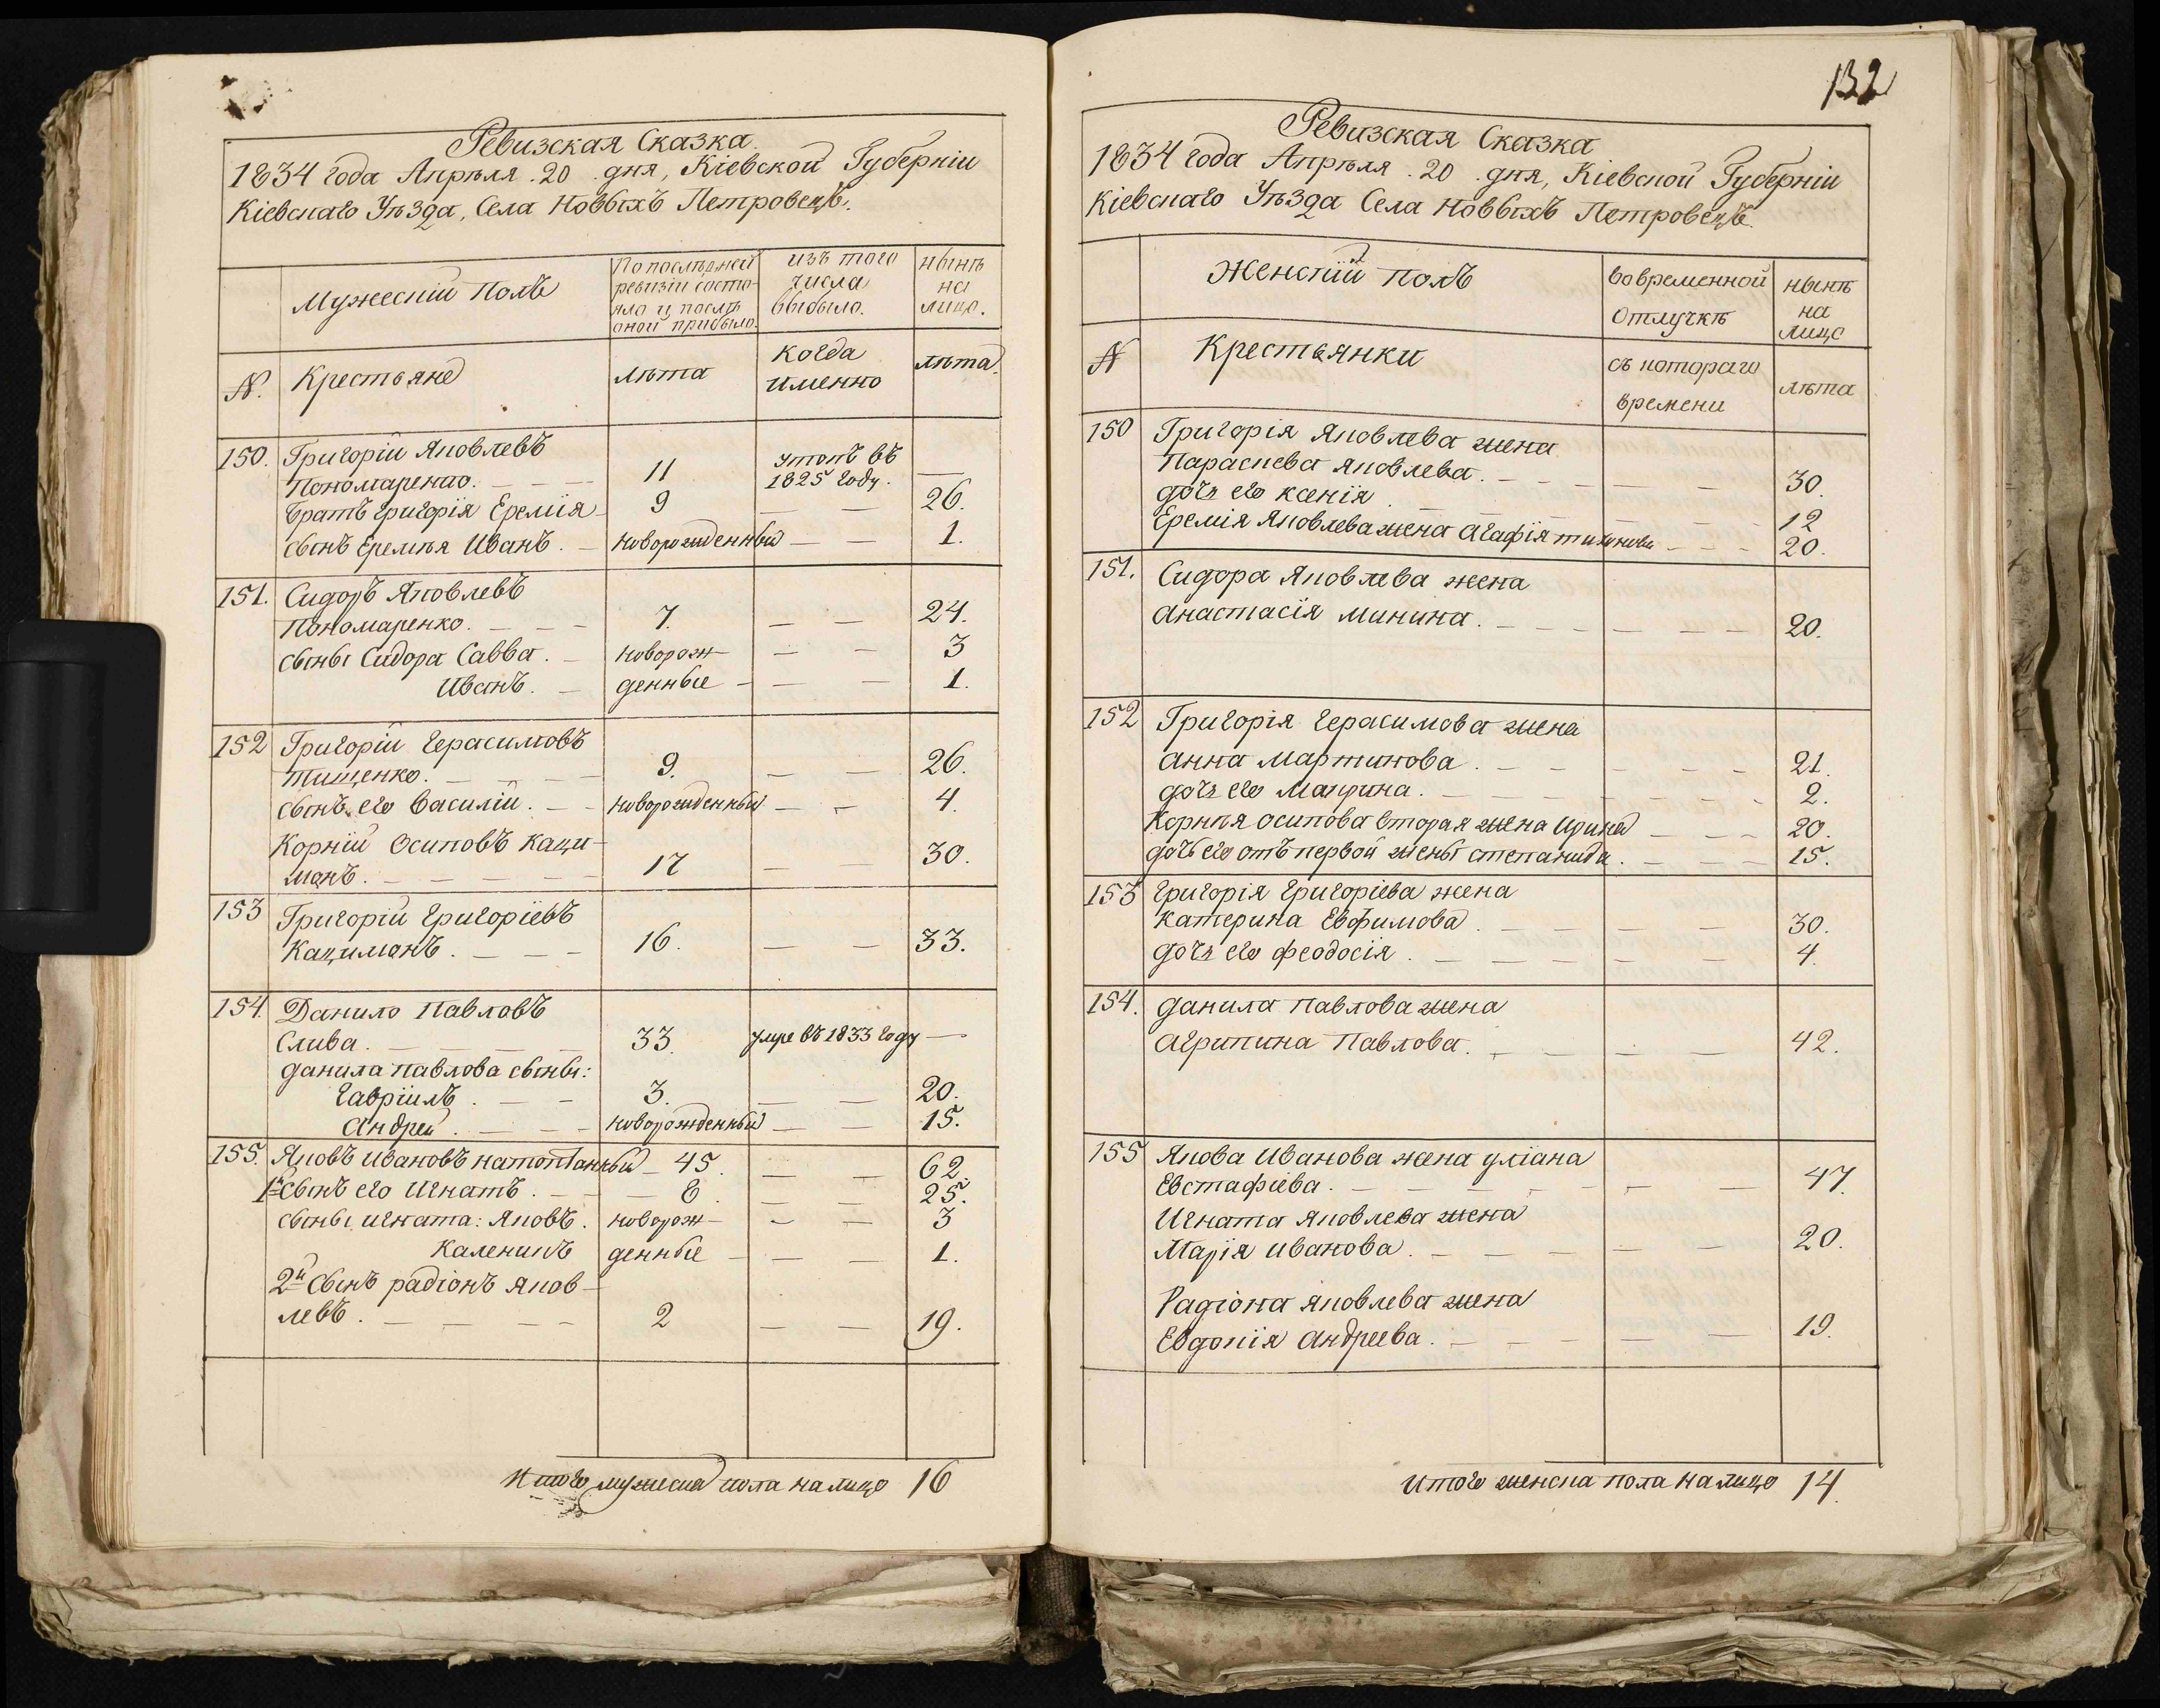 Ревизская Сказка.
1834 года Апрѣля. 20. дня, Кіевской Губерніи
Кіевскаго Уѣзда, Села Новвыхъ Петровецъ.
Мужескій Полъ
По послѣдней ревизіи состояло и послѣ оной прибыло.
изъ того числа выбыло.
нынѣ на лицо.
№.
Крестьяне
лѣта
когда именно
лѣта.
150. Григорій Яковлевъ
Пономаренко. 11 утопъ въ 1825 году. —
братъ григорія Еремія 9 — — 26.
сынъ Еремѣя Иванъ. — новорожденный — — 1.
151. Сидоръ Яковлевъ
Пономаренко. — — — 7. — — 24.
сыны Сидора Савва. — новорож- — — 3
Иванъ. — денные — — — 1.
152 Григорій Герасимовъ
тищенко. — — — — 9. — — 26.
сынъ его Василій. — — новорожденный — — 4.
Корній Осиповъ Каци-
манъ. — — — — — 17 — 30.
153 Григорій Григоріевъ
Кациманъ. — — — 16. — — 33.
154. Данило Павловъ
Слива. — — — — 33. умре въ 1833 году —
данила павлова сыны:
Гавріилъ. — — 3. — — 20.
Андрей. — — — новорожденный — — 15.
155. Яковъ ивановъ натоптанный — 45. — — 62
1й Сынъ его Игнатъ. — — — 8. — — 25.
сыны игната: Яковъ. новорож- — — 3
Каленикъ денные — — — 1.
2й Сынъ радіонъ яков-
левъ. — — — — 2 — — 19.
Итого мужеска пола на лицо 16
132
Ревизская Сказка
1834 года Апрѣля. 20. дня, Кіевской Губерніи
Кіевскаго Уѣзда Села Новвыхъ Петровецъ.
Женскій полъ
во временной отлучкѣ
нынѣ на лицо
№
Крестьянки
съ котораго времени
лѣта
150 Григорія Яковлева жена
Параскева яковлева. — — — — — 30.
дочь его ксенія — — — — — 12
Еремія Яковлева жена Агафія тихонова — — — 20.
151. Сидора Яковлева жена
Анастасія минина. — — — — — — 20.
152 Григорія Герасимова жена
Анна мартинова. — — — — — — 21.
дочь его Макрина. — — — — — — 2.
Корнѣя осипова вторая жена ирина — — — 20.
дочь его отъ первой жены степанида. — — — 15.
153 Григорія Григоріева жена
Катерина Евфимова. — — — — — 30.
дочь его феодосія. — — — — — 4.
154. данила павлова жена
Агрипина Павлова. — — — — 42.
155 Якова Иванова жена уліана
Евстафіева. — — — — — — 47.
Игната яковлева жена
Марія иванова. — — — — — 20.
Радіона яковлева жена
Евдокія Андреева. — — — — — 19.
Итого женска пола на лицо 14.